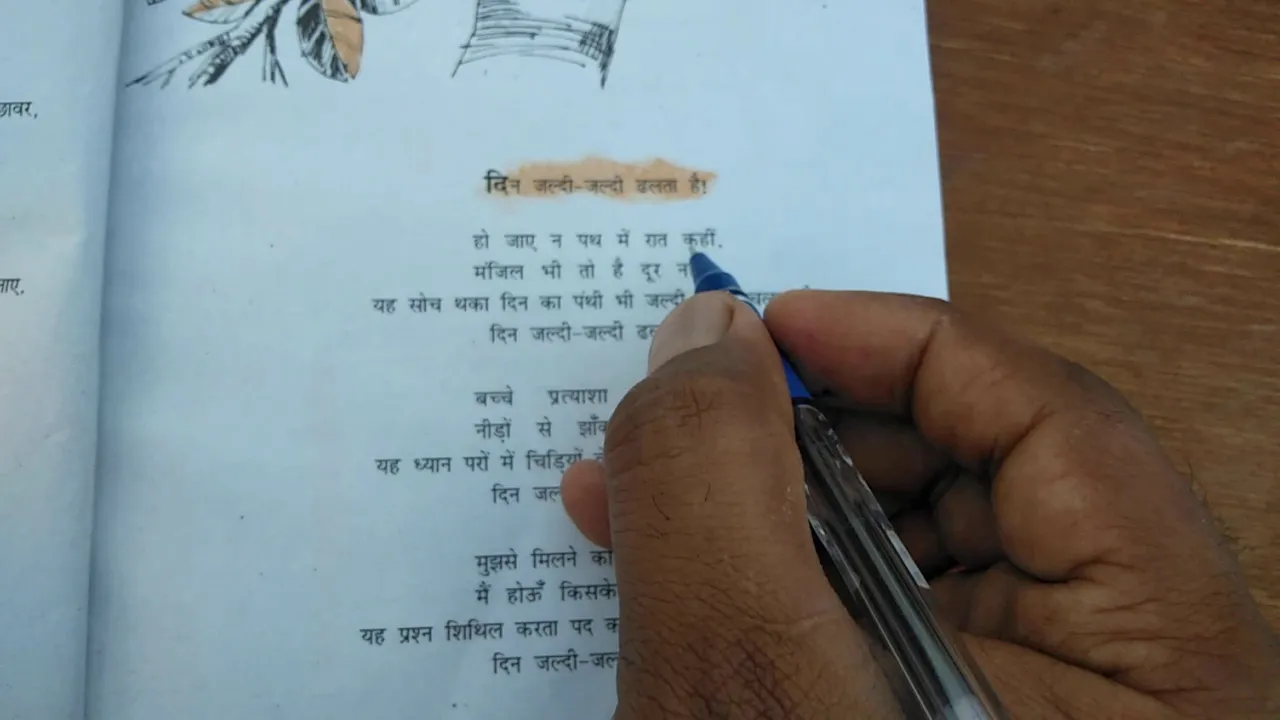 छावर,
दिन जल्दी-जल्दी ढलता है!
हो जाए न पथ में रात कहीं,
मंजिल भी तो है दूर
यह सोच थका दिन का पंथी भी जल्दी
दिन जल्दी-जल्दी
बच्चे प्रत्याशा
नीड़ों से
यह ध्यान परों में चिड़ियों
दिन
मुझसे मिलने को
मैं होऊँ किसके
यह प्रश्न शिथिल करता पद
दिन जल्दी-जल